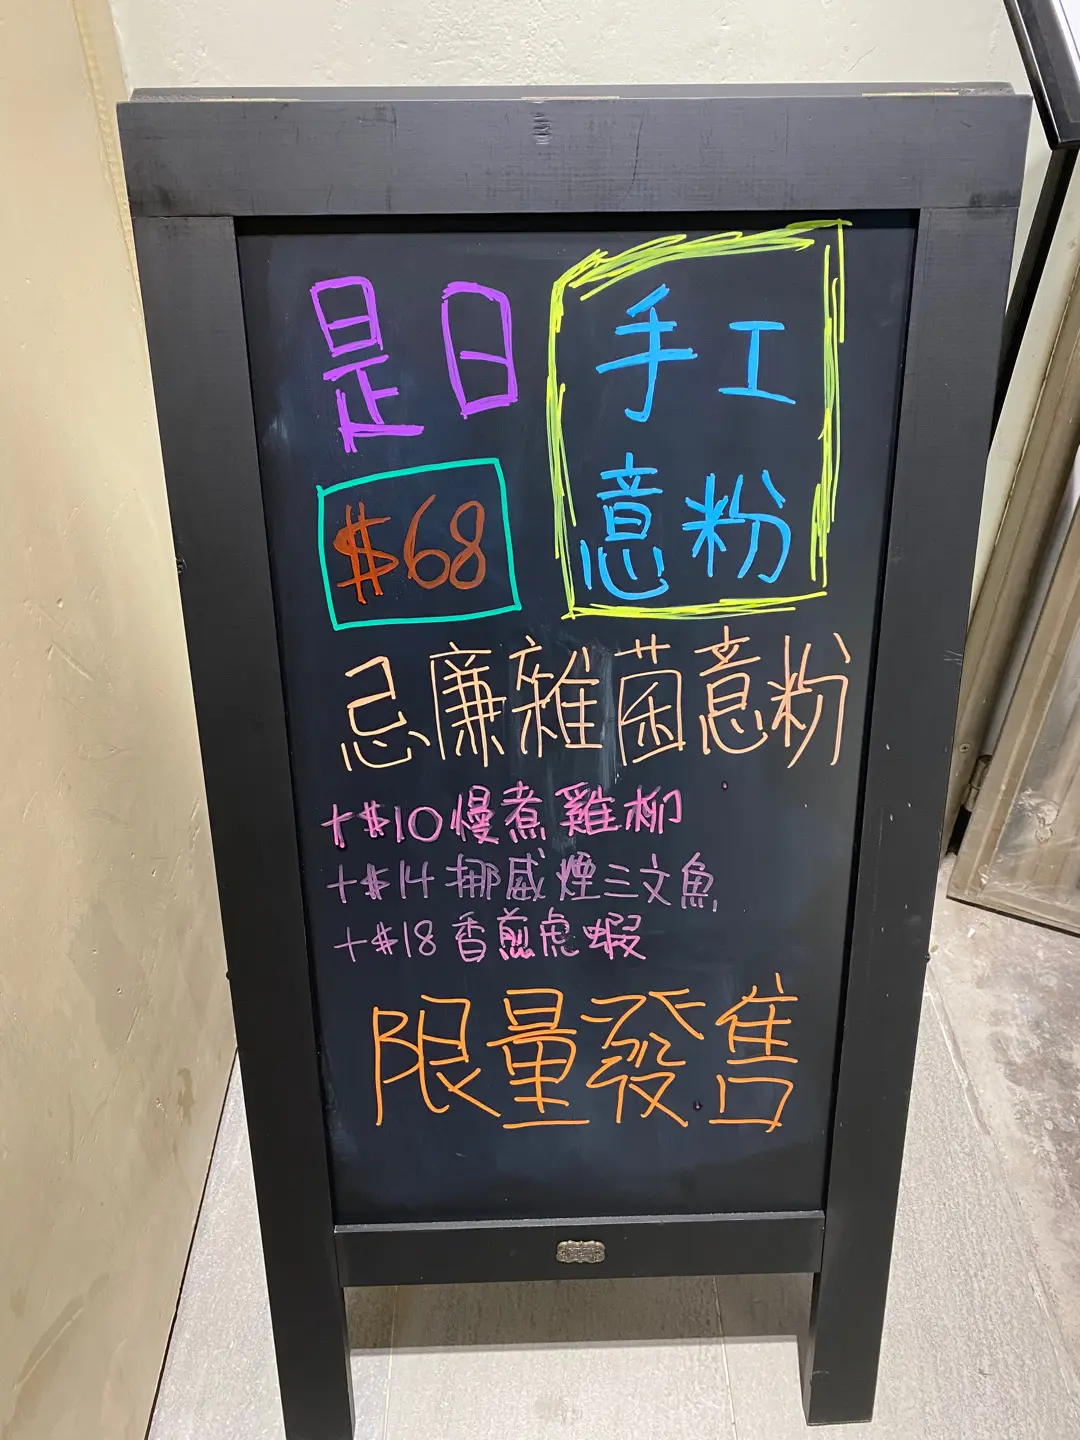 是日
手工
意粉
$68
忌廉雜菌意粉
+$10慢煮雞柳
+$14挪威煙三文魚
+$18香煎虎蝦
限量發售